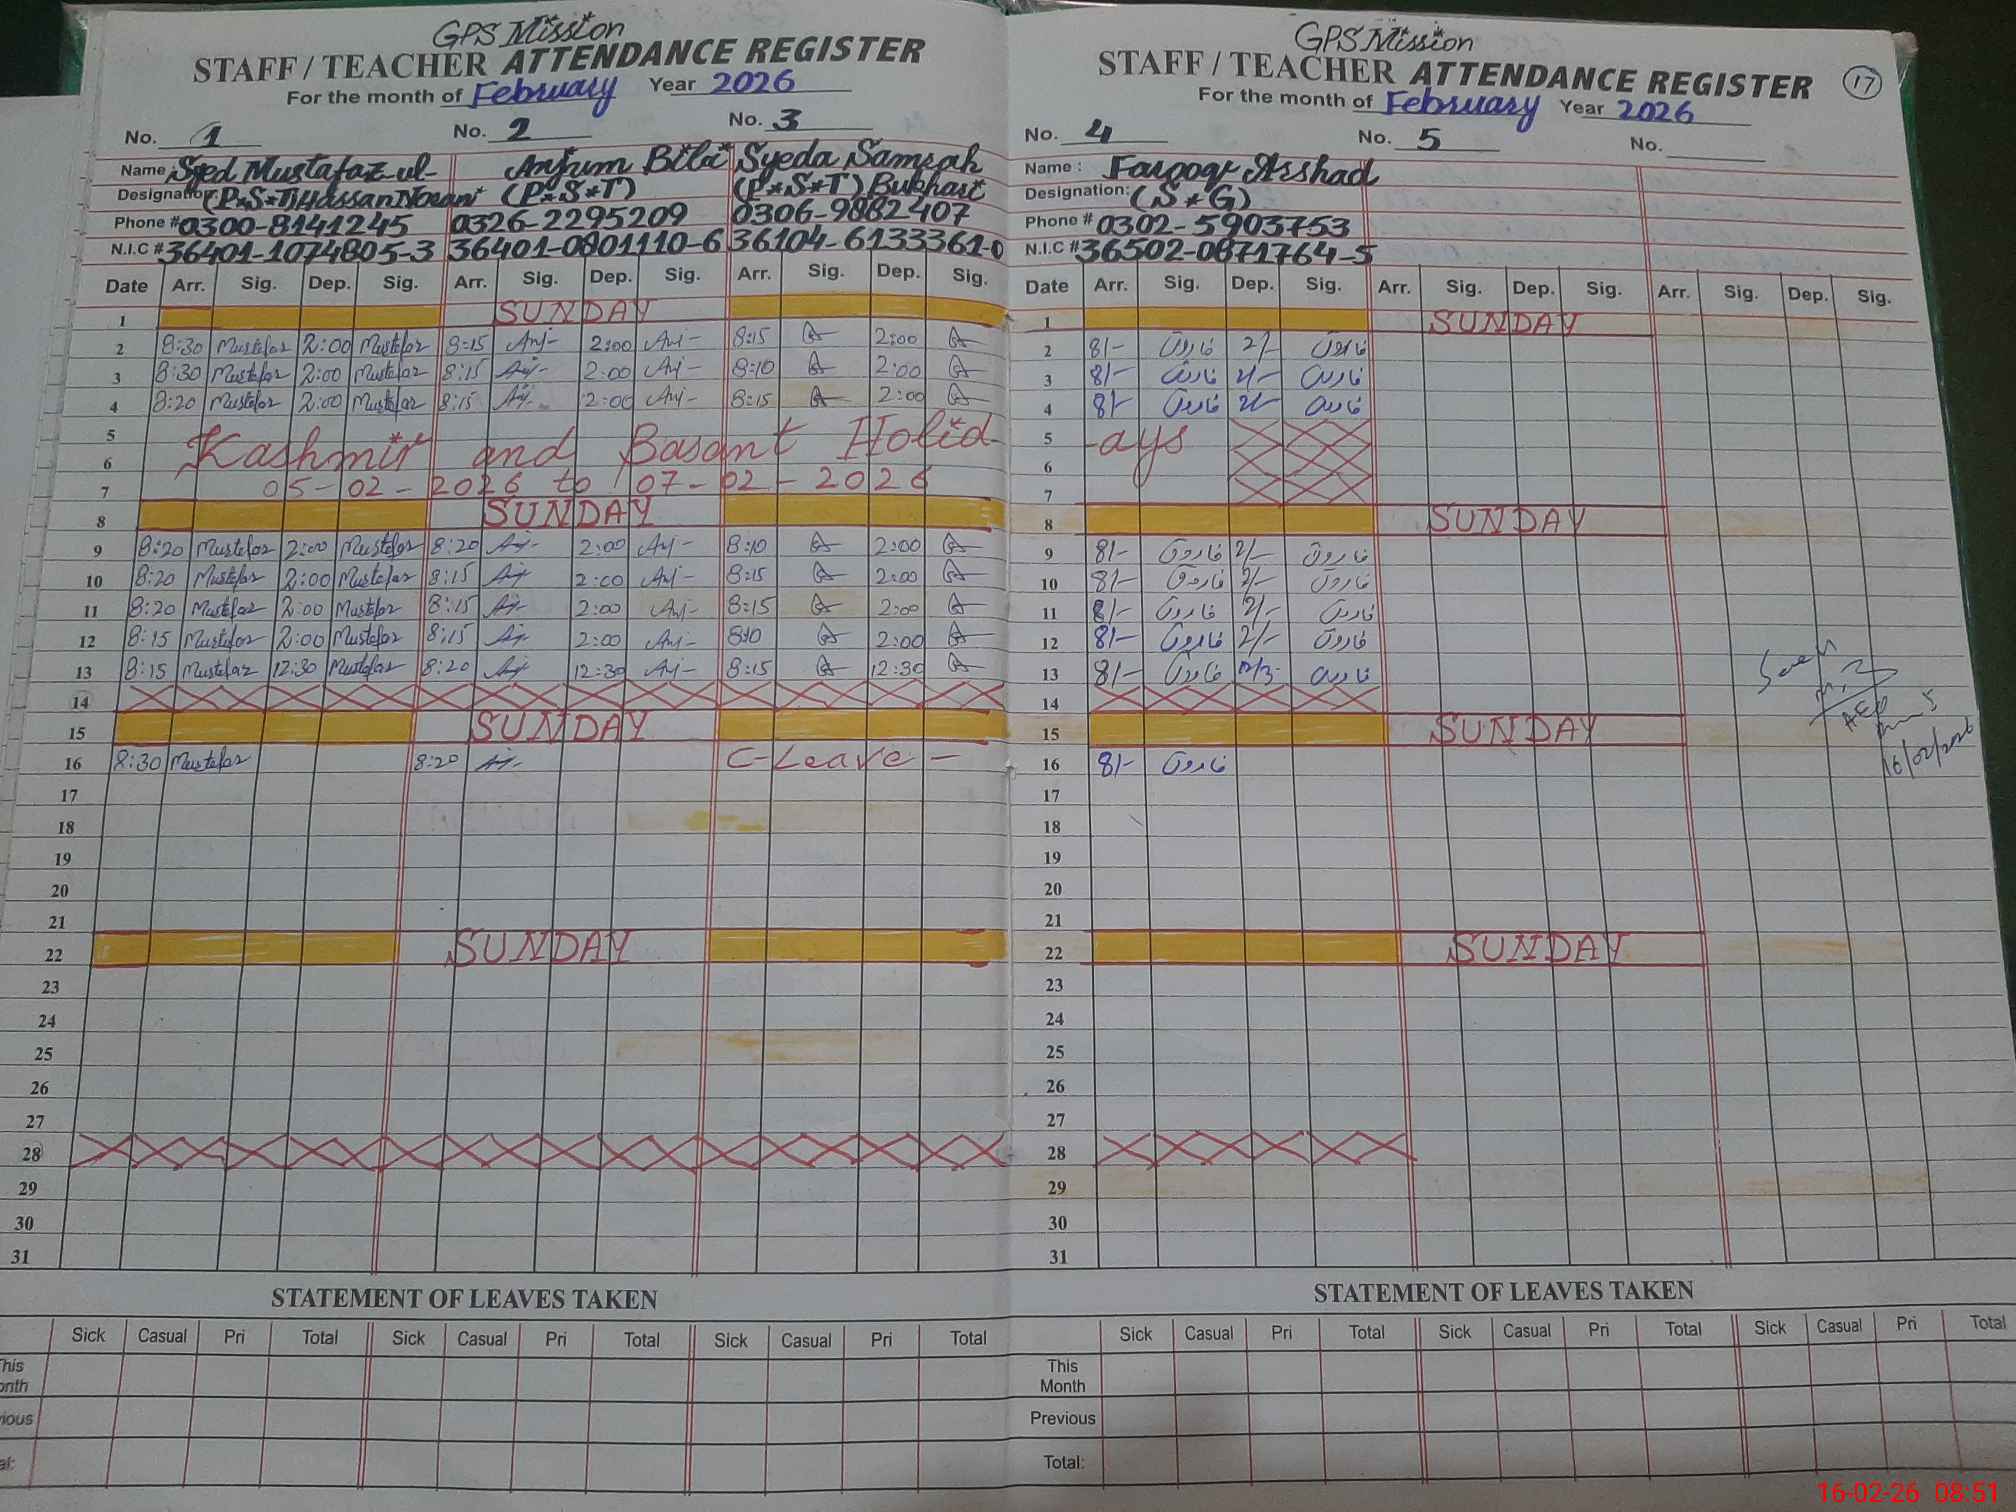 GPS Mission
STAFF / TEACHER ATTENDANCE REGISTER
For the month of February Year 2026
No. 1 No. 2 No. 3
Name Syed Mustafaz-ul- Anjum Bibi Syeda Samrah
Designation (P*S*T) Hassan (P*S*T) (P*S*T) Bukhari
Phone # 0300-8141245 0326-2295209 0306-9882407
N.I.C # 36401-1074805-3 36401-0801110-6 36104-6133361-0
Date Arr. Sig. Dep. Sig. Arr. Sig. Dep. Sig. Arr. Sig. Dep. Sig.
1 SUNDAY
2 8:30 Mustafaz 2:00 Mustafaz 8:15 Anj- 2:00 Anj- 8:15 2:00
3 8:30 Mustafaz 2:00 Mustafaz 8:15 Anj- 2:00 Anj- 8:10 2:00
4 8:20 Mustafaz 2:00 Mustafaz 8:15 Anj- 2:00 Anj- 8:15 2:00
5
6 Kashmir and Basant Holid-
7 05-02-2026 to 07-02-2026
8 SUNDAY
9 8:20 Mustafaz 2:00 Mustafaz 8:20 Anj- 2:00 Anj- 8:10 2:00
10 8:20 Mustafaz 2:00 Mustafaz 8:15 Anj- 2:00 Anj- 8:15 2:00
11 8:20 Mustafaz 2:00 Mustafaz 8:15 Anj- 2:00 Anj- 8:15 2:00
12 8:15 Mustafaz 2:00 Mustafaz 8:15 Anj- 2:00 Anj- 8:10 2:00
13 8:15 Mustafaz 12:30 Mustafaz 8:20 Anj- 12:30 Anj- 8:15 12:30
14
15 SUNDAY
16 8:30 Mustafaz 8:20 Anj- C-Leave -
17
18
19
20
21
22 SUNDAY
23
24
25
26
27
28
29
30
31
STATEMENT OF LEAVES TAKEN
Sick Casual Pri Total Sick Casual Pri Total Sick Casual Pri Total
GPS Mission
STAFF / TEACHER ATTENDANCE REGISTER 17
For the month of February Year 2026
No. 4 No. 5 No.
Name : Farooq Arshad
Designation: (S*G)
Phone # 0302-5903753
N.I.C # 36502-0871764-5
Date Arr. Sig. Dep. Sig. Arr. Sig. Dep. Sig. Arr. Sig. Dep. Sig.
1 SUNDAY
2 8/- فاروق 2/- فاروق
3 8/- فاروق 2/- فاروق
4 8/- فاروق 2/- فاروق
5 -ays
6
7
8 SUNDAY
9 8/- فاروق 2/- فاروق
10 8/- فاروق 2/- فاروق
11 8/- فاروق 2/- فاروق
12 8/- فاروق 2/- فاروق
13 8/- فاروق فاروق
14
15 SUNDAY
16 8/- فاروق
Seen
AEO
16/02/2026
17
18
19
20
21
22 SUNDAY
23
24
25
26
27
28
29
30
31
STATEMENT OF LEAVES TAKEN
Sick Casual Pri Total Sick Casual Pri Total Sick Casual Pri Total
This
Month
Previous
Total:
16-02-26 08:51